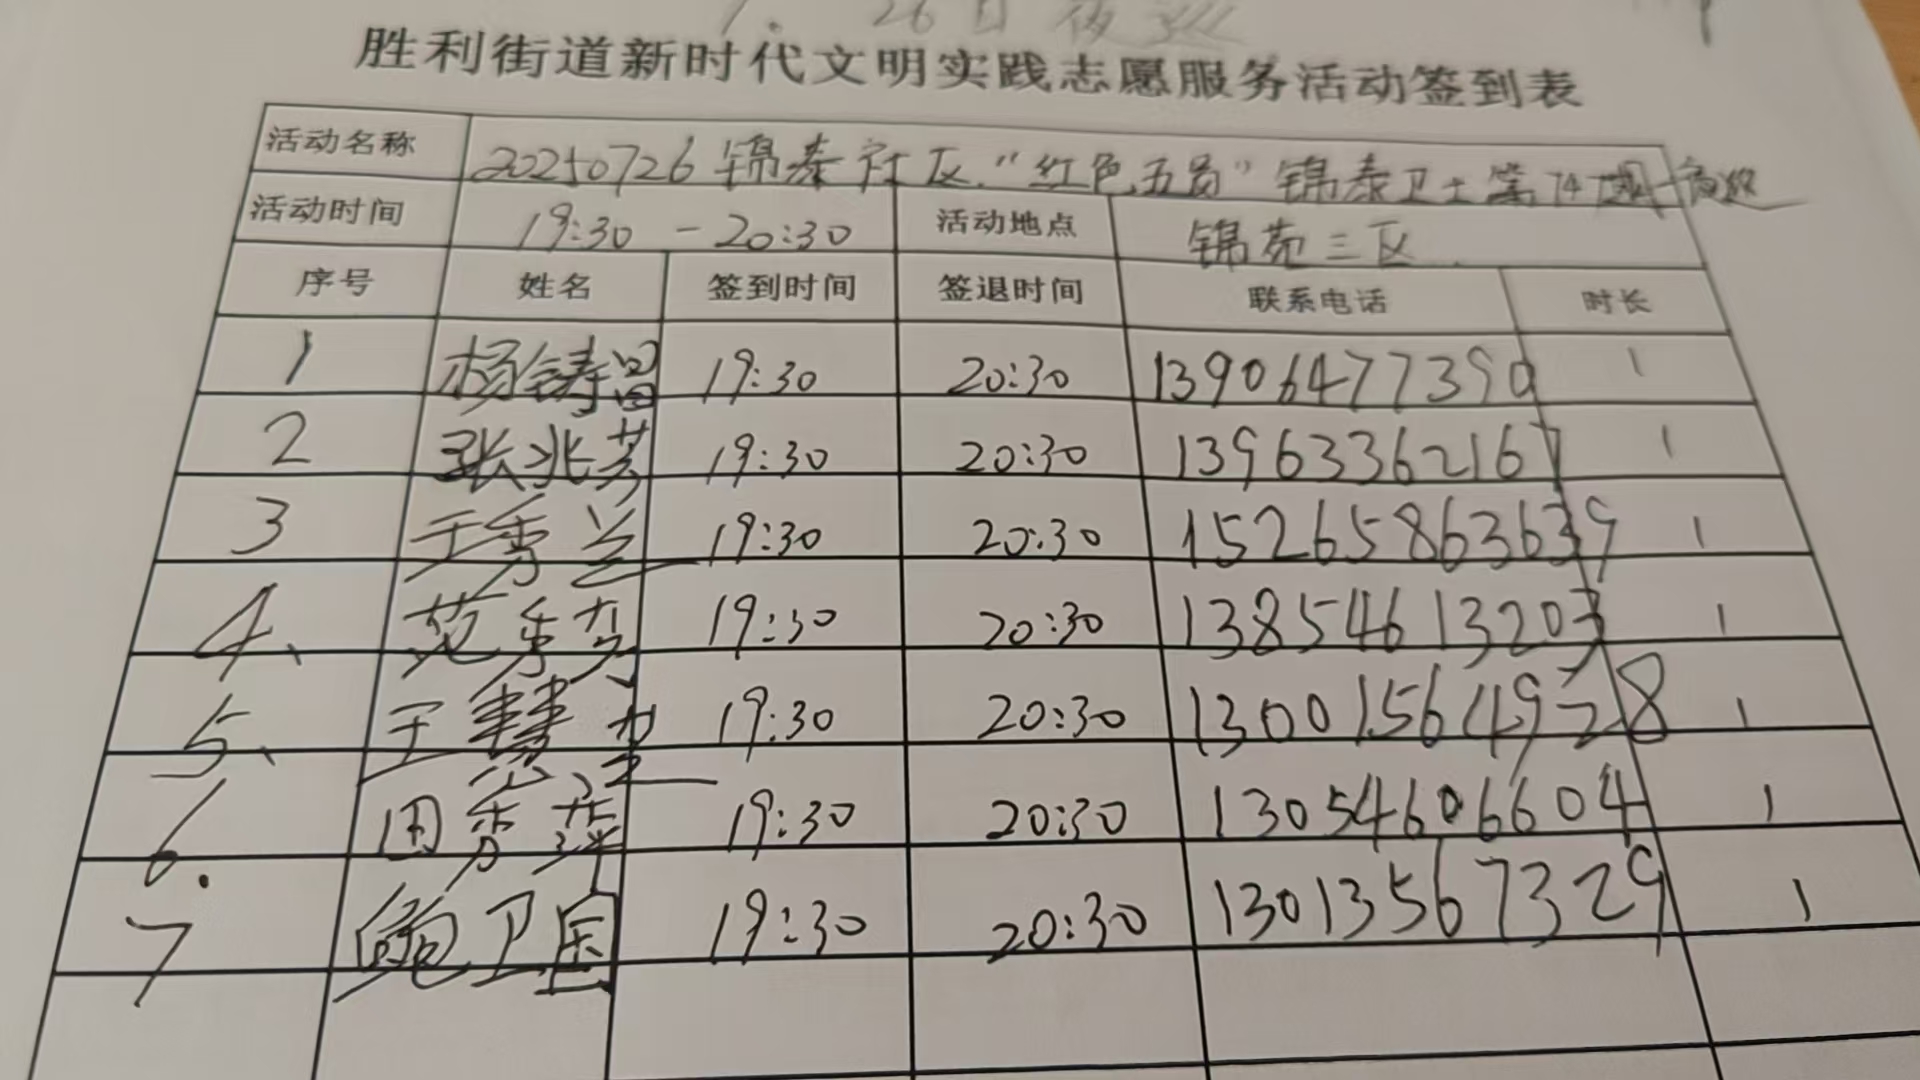 7.26日夜巡
胜利街道新时代文明实践志愿服务活动签到表
活动名称 20250726锦泰社区“红色五员”锦泰卫士第74周夜巡
活动时间 19:30-20:30 活动地点 锦苑三区
序号 姓名 签到时间 签退时间 联系电话 时长
1 杨铸昌 19:30 20:30 13906477390 1
2 张兆芳 19:30 20:30 13963362167 1
3 王秀兰 19:30 20:30 15265863639 1
4、 范秀芬 19:30 20:30 13854613203 1
5、 王 19:30 20:30 13001564928 1
6. 周秀萍 19:30 20:30 13054606604 1
7 鲍卫国 19:30 20:30 13013567329 1